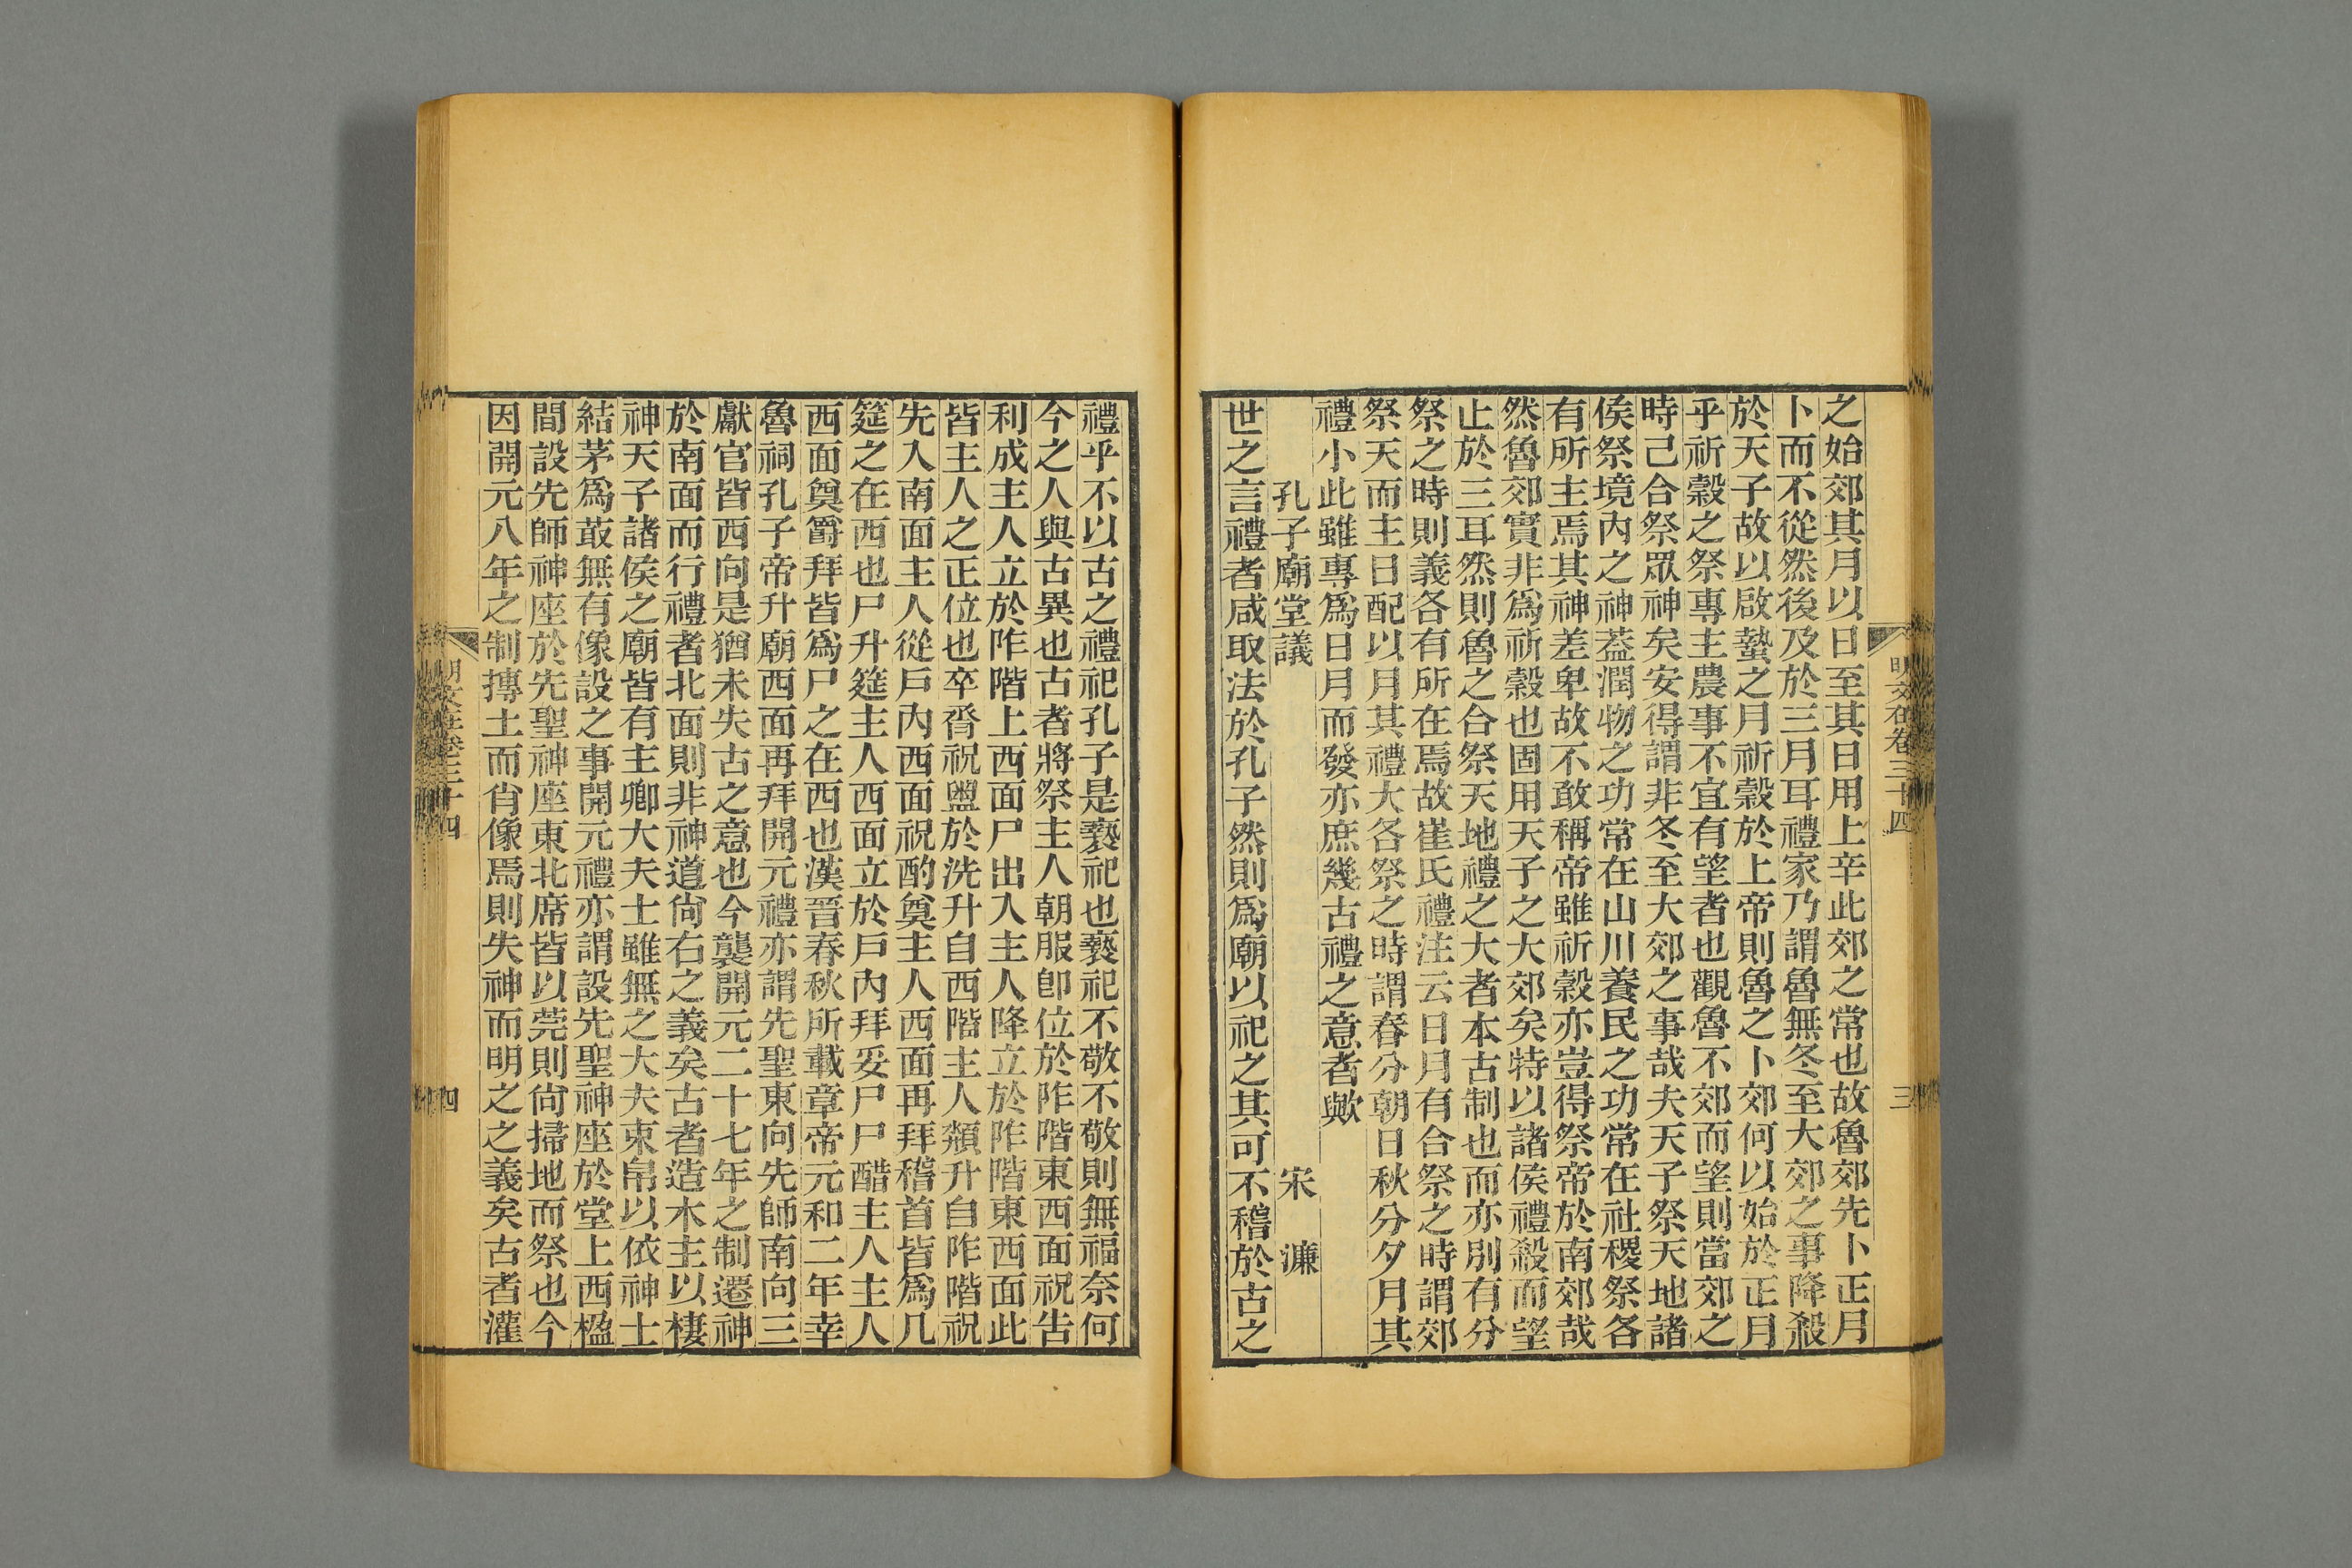 之始郊其月以日至其日用上辛此郊之常也故魯郊先卜正月
卜而不從然後及於三月耳禮家乃謂魯無冬至大郊之事降殺
於天子故以啟蟄之月祈穀於上帝則魯之卜郊何以始於正月
乎祈穀之祭專主農事不宜有望者也觀魯不郊而望則當郊之
時己合祭眾神矣安得謂非冬至大郊之事哉夫天子祭天地諸
侯祭境內之神葢潤物之功常在山川養民之功常在社稷祭各
有所主焉其神差卑故不敢稱帝雖祈穀亦豈得祭帝於南郊哉
然魯郊實非爲祈穀也固用天子之大郊矣特以諸侯禮殺而望
止於三耳然則魯之合祭天地禮之大者本古制也而亦別有分
祭之時則義各有所在焉故崔氏禮注云日月有合祭之時謂郊
祭天而主日配以月其禮大各祭之時謂春分朝日秋分夕月其
禮小此雖專爲日月而發亦庶幾古禮之意者歟
孔子廟堂議 宋 濂
世之言禮者咸取法於孔子然則爲廟以祀之其可不稽於古之
明文在卷三十四 三
禮乎不以古之禮祀孔子是褻祀也褻祀不敬不敬則無福奈何
今之人與古異也古者將祭主人朝服卽位於阼階東西面祝告
利成主人立於阼階上西面尸出入主人降立於阼階東西面此
皆主人之正位也卒脀祝盥於洗升自西階主人盥升自阼階祝
先入南面主人從戶內西面祝酌奠主人西面再拜稽首皆爲几
筵之在西也尸升筵主人西面立於戶內拜妥尸尸醋主人主人
西面奠爵拜皆爲尸之在西也漢晉春秋所載章帝元和二年幸
魯祠孔子帝升廟西面再拜開元禮亦謂先聖東向先師南向三
獻官皆西向是猶未失古之意也今襲開元二十七年之制遷神
於南面而行禮者北面則非神道尙右之義矣古者造木主以棲
神天子諸侯之廟皆有主卿大夫士雖無之大夫束帛以依神士
結茅爲菆無有像設之事開元禮亦謂設先聖神座於堂上西楹
間設先師神座於先聖神座東北席皆以莞則尙掃地而祭也今
因開元八年之制摶土而肖像焉則失神而明之之義矣古者灌
明文在卷三十四 四